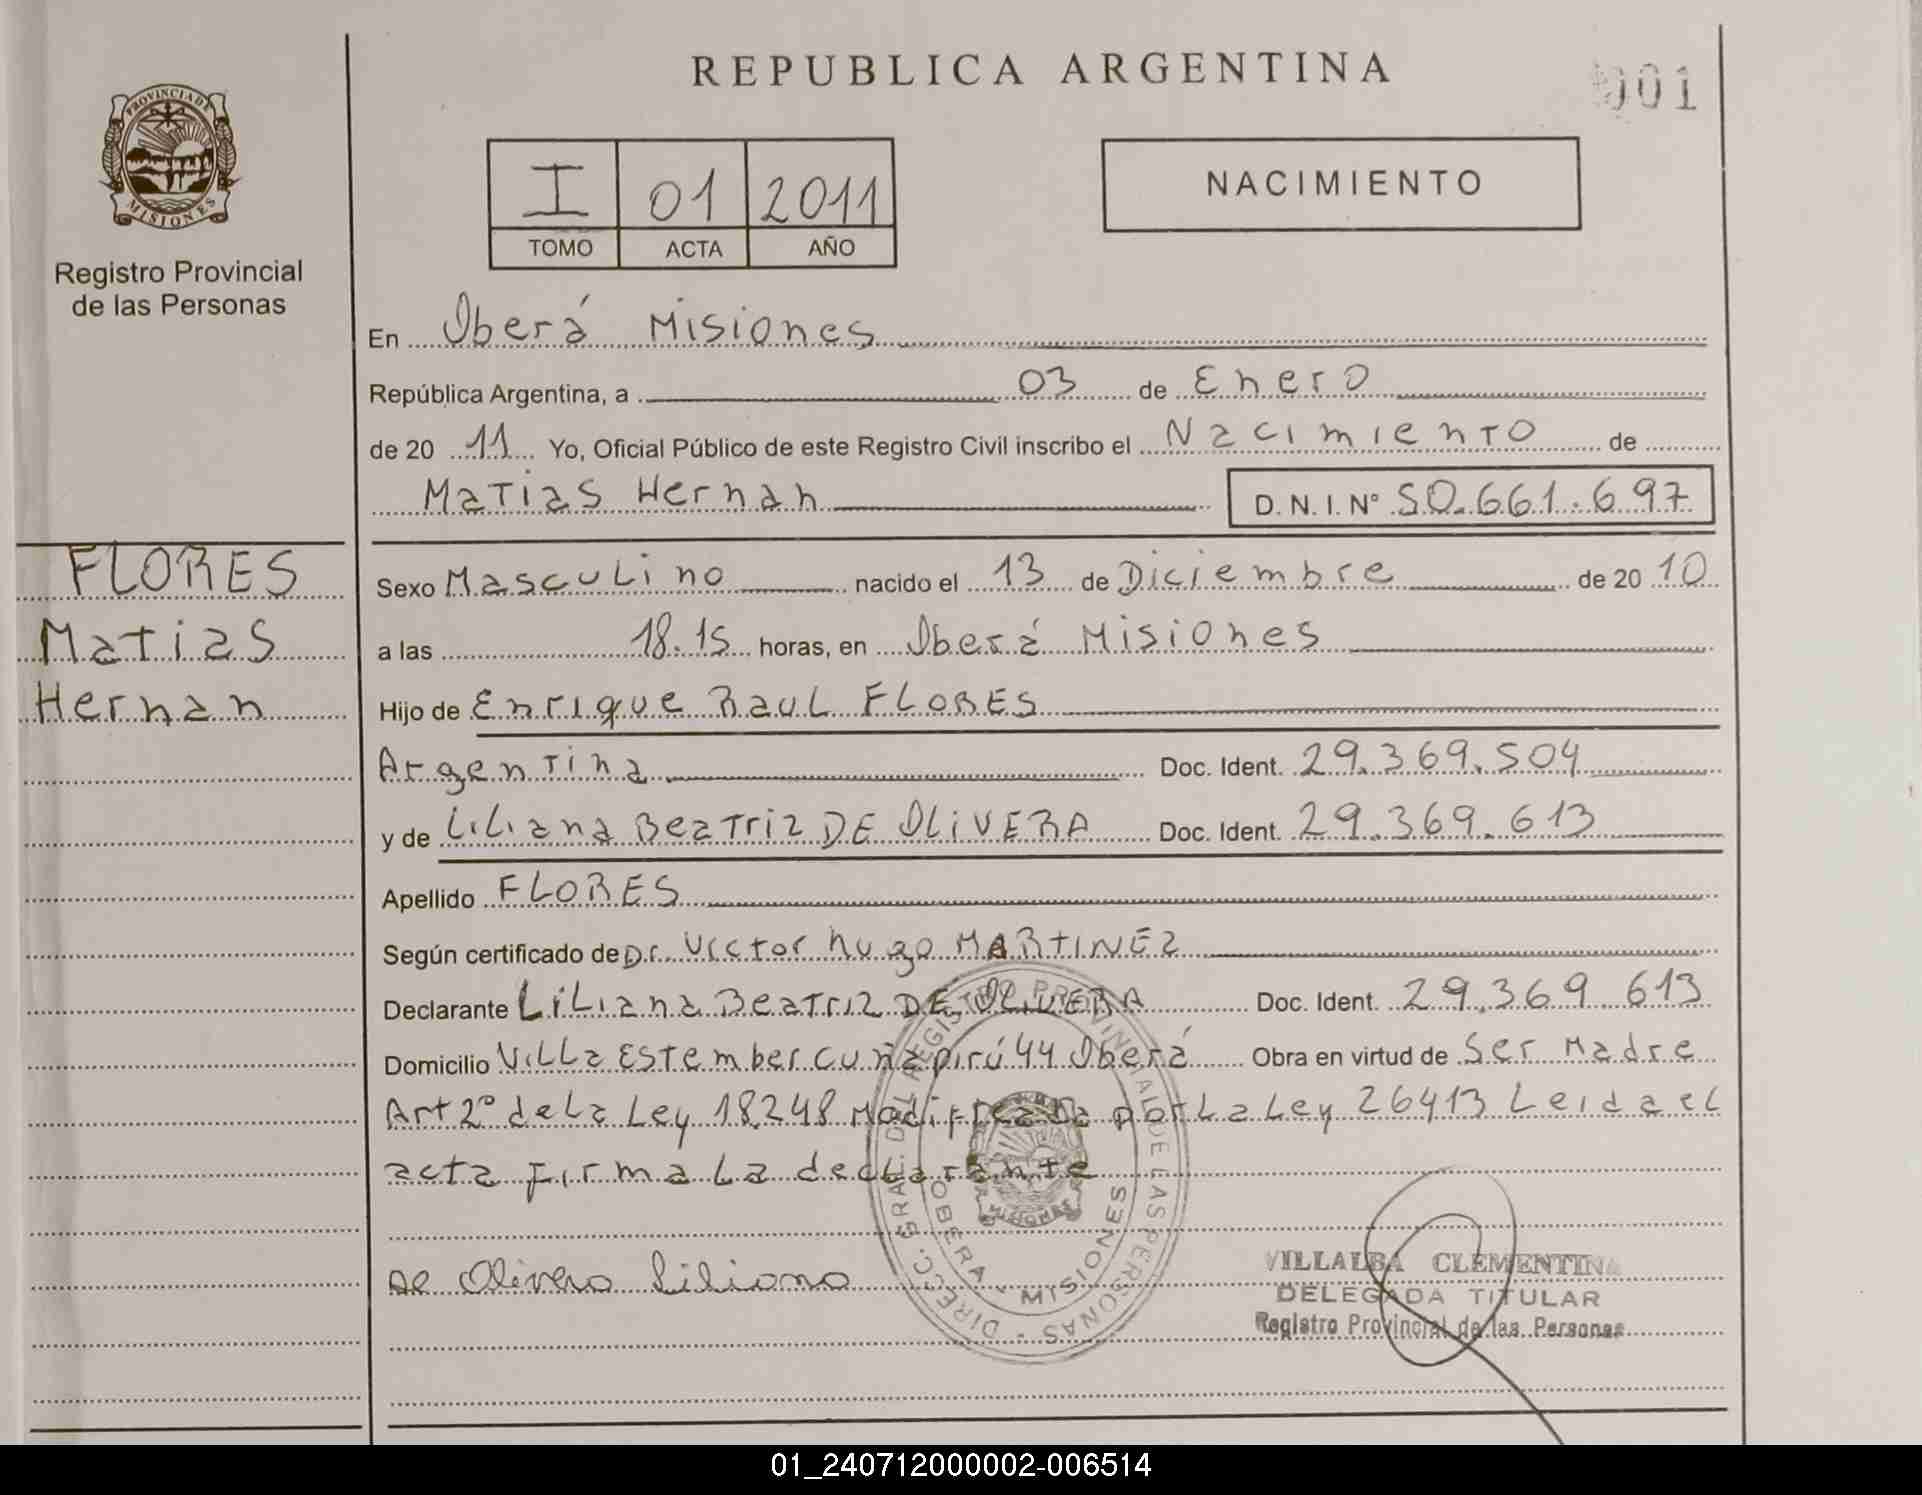 REPUBLICA ARGENTINA
001
PROVINCIA DE
MISIONES
Registro Provincial
de las Personas
I 01 2011
TOMO ACTA AÑO
NACIMIENTO
En Oberá Misiones
República Argentina, a 03 de Enero
de 20 11 Yo, Oficial Público de este Registro Civil inscribo el Nacimiento de
Matias Hernan D.N.I. Nº 50.661.697
FLORES
Matias
Hernan
Sexo Masculino nacido el 13 de Diciembre de 20 10
a las 18.15 horas, en Oberá Misiones
Hijo de Enrique Raul FLORES
Argentina Doc. Ident. 29.369.504
y de Liliana Beatriz DE OLIVERA Doc. Ident. 29.369.613
Apellido FLORES
Según certificado de Dr. Victor hugo MARTINEZ
Declarante Liliana Beatriz DE OLIVERA Doc. Ident. 29.369 613
Domicilio Villa Estember cuñapirú 44 Oberá Obra en virtud de Ser Madre
Art 2º de La Ley 18.248 Modificada por La Ley 26413 Leida el
acta firma La declarante
DIRECC. GRAL. DEL REGISTRO PROVINCIAL DE LAS PERSONAS
OBERA - MISIONES
MISIONES
De Olivera Liliana
VILLALBA CLEMENTINA
DELEGADA TITULAR
Registro Provincial de las Personas
01_240712000002-006514